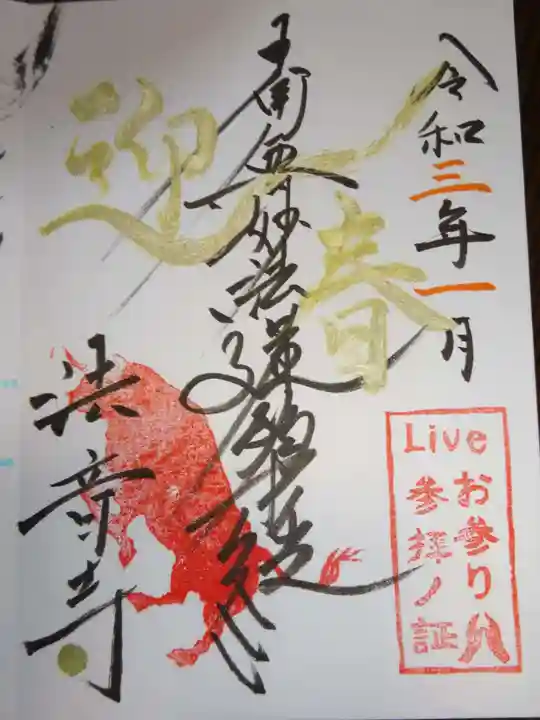 令和三年一月
迎春
南無妙法蓮華経
Live お参り
参拝ノ証